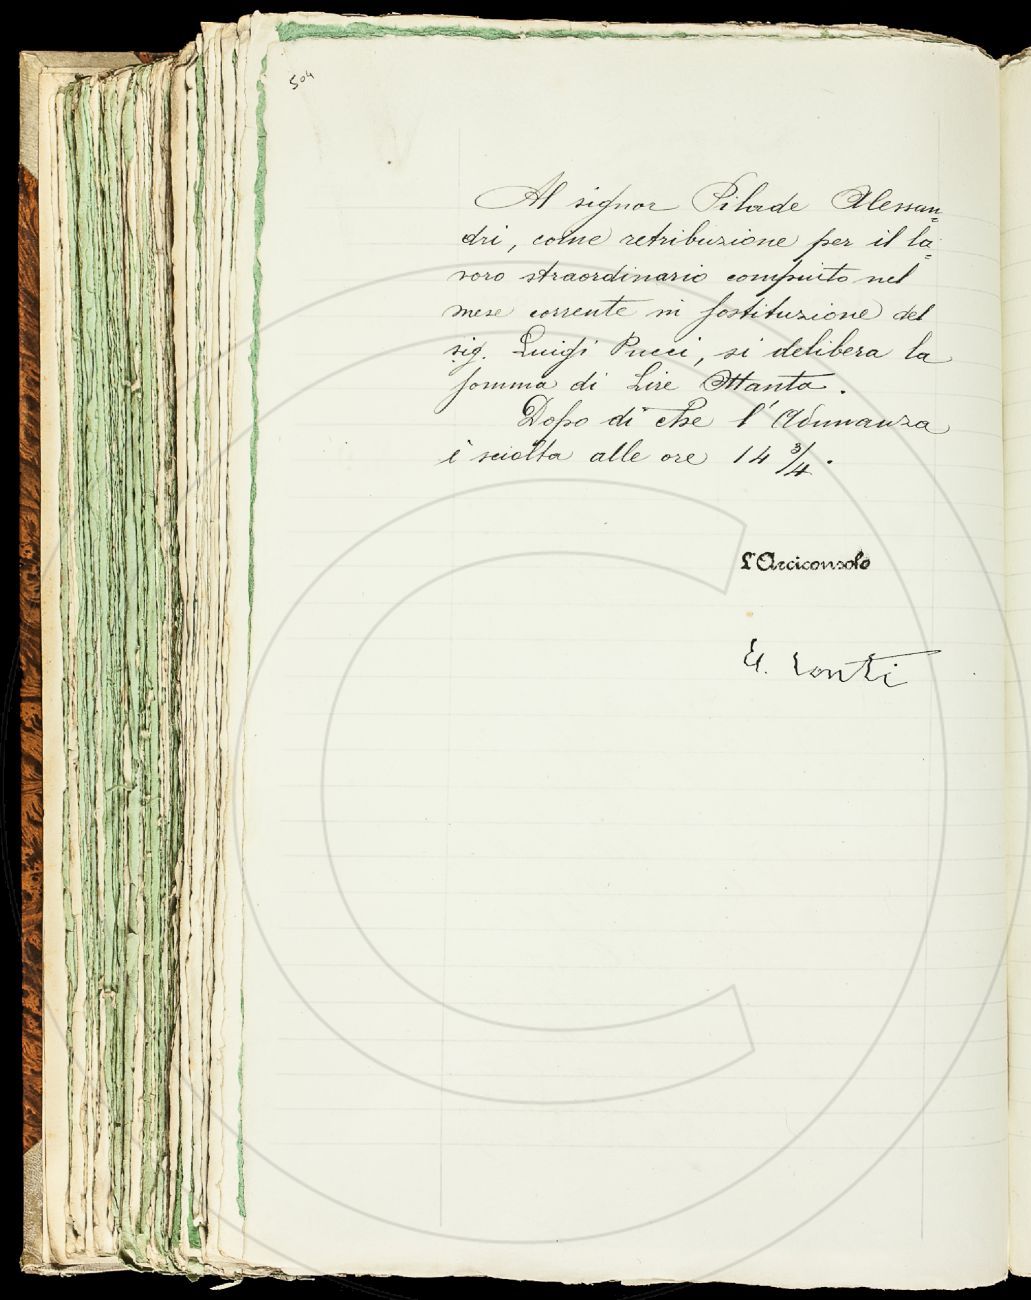 504
Al signor Pilade Alessan=
dri, come retribuzione per il la=
voro straordinario compiuto nel
mese corrente in sostituzione del
sig. Luigi Pucci, si delibera la
somma di Lire Ottanta.
Dopo di che l'Adunanza
è sciolta alle ore 14 3/4.
L'Arciconsolo
A. Conti